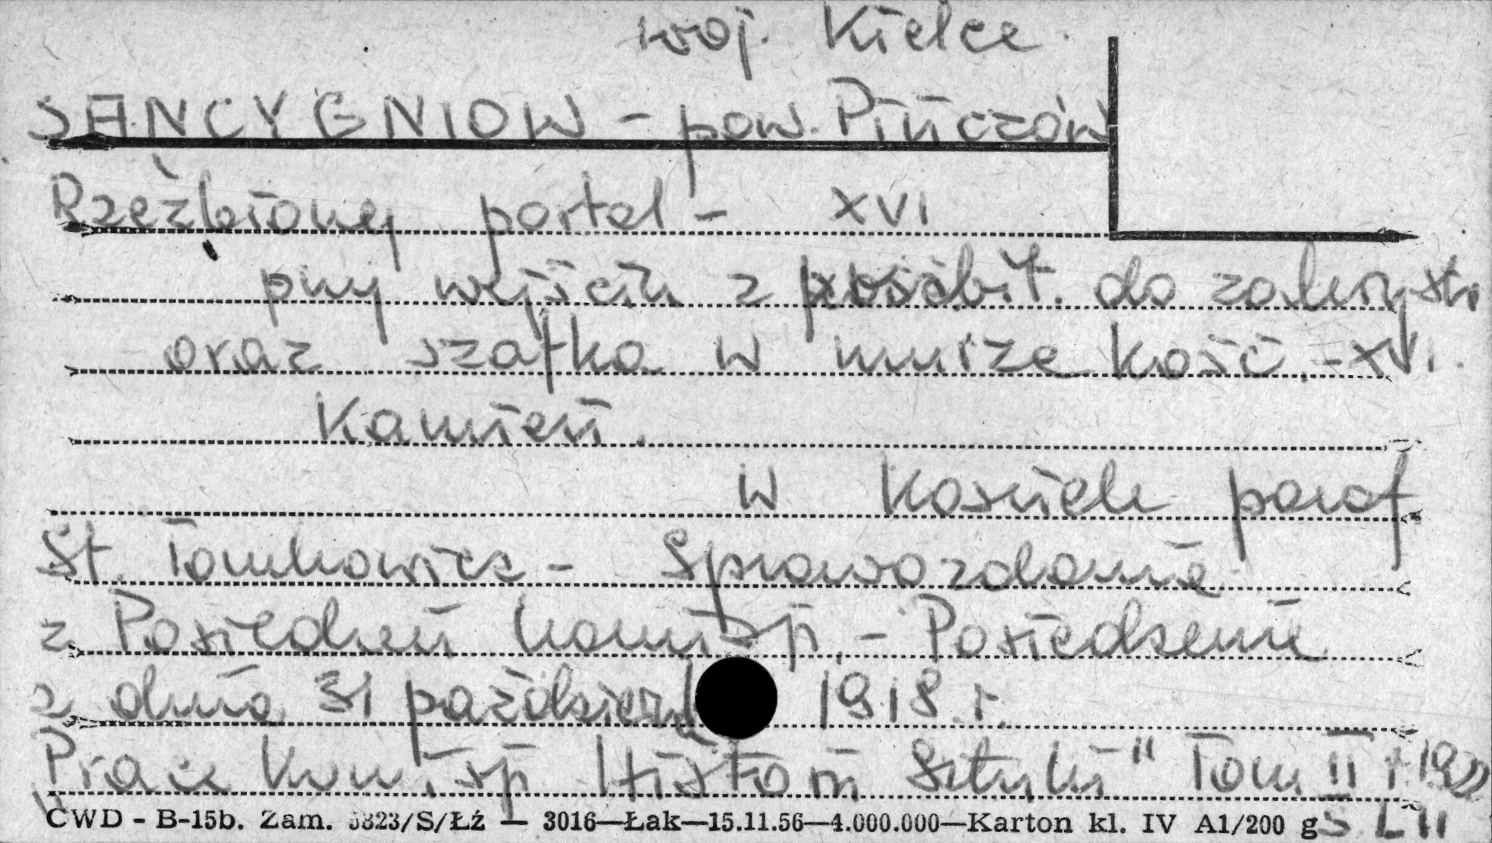 woj. Kielce.
SANCYGNIOW - pow. Pińczów
Rzeźbiony portal - XVI
przy wejściu z prezbit. do zakrysti
oraz szafka w murze kośc. - XVI.
Kamień.
w Kosciele paraf
St. Tomkowicz - Sprawozdanie
z Posiedzeń Komisji. - Posiedzenie
z dnia 31 październ 1918 r.
Prace Komisji Historii Sztuki" Tom II r 1922
CWD - B-15b. Zam. 5323/S/Łż — 3016—Łak—15.11.56—4.000.000—Karton kl. IV A1/200 g S LII